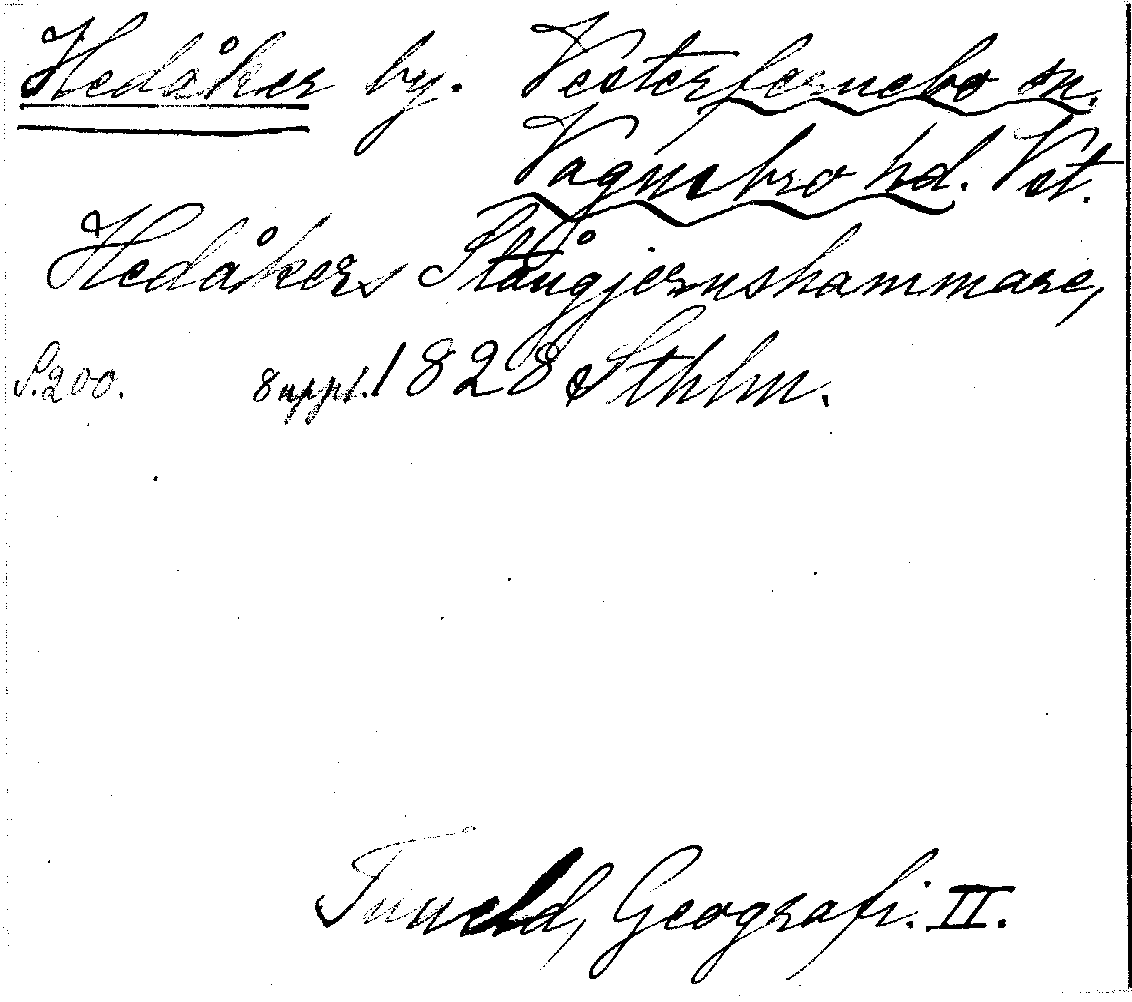 Hedåker by. Vesterfernebo sn.
Vagnsbro hd. Vst.
Hedåkers Stångjernshammare,
S. 200. 8 uppl. 1828 Sthlm.
Tuneld, Geografi. II.